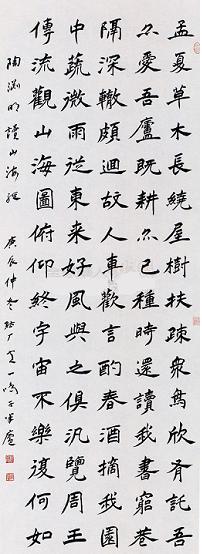 孟夏草木長繞屋樹扶疎衆鳥欣有託吾
亦愛吾廬既耕亦已種時還讀我書窮巷
隔深轍頗迴故人車歡言酌春酒摘我園
中蔬微雨從東来好風與之俱汎覽周王
傳流觀山海圖俯仰終宇宙不樂復何如
陶渊明讀山海經 庚辰仲冬